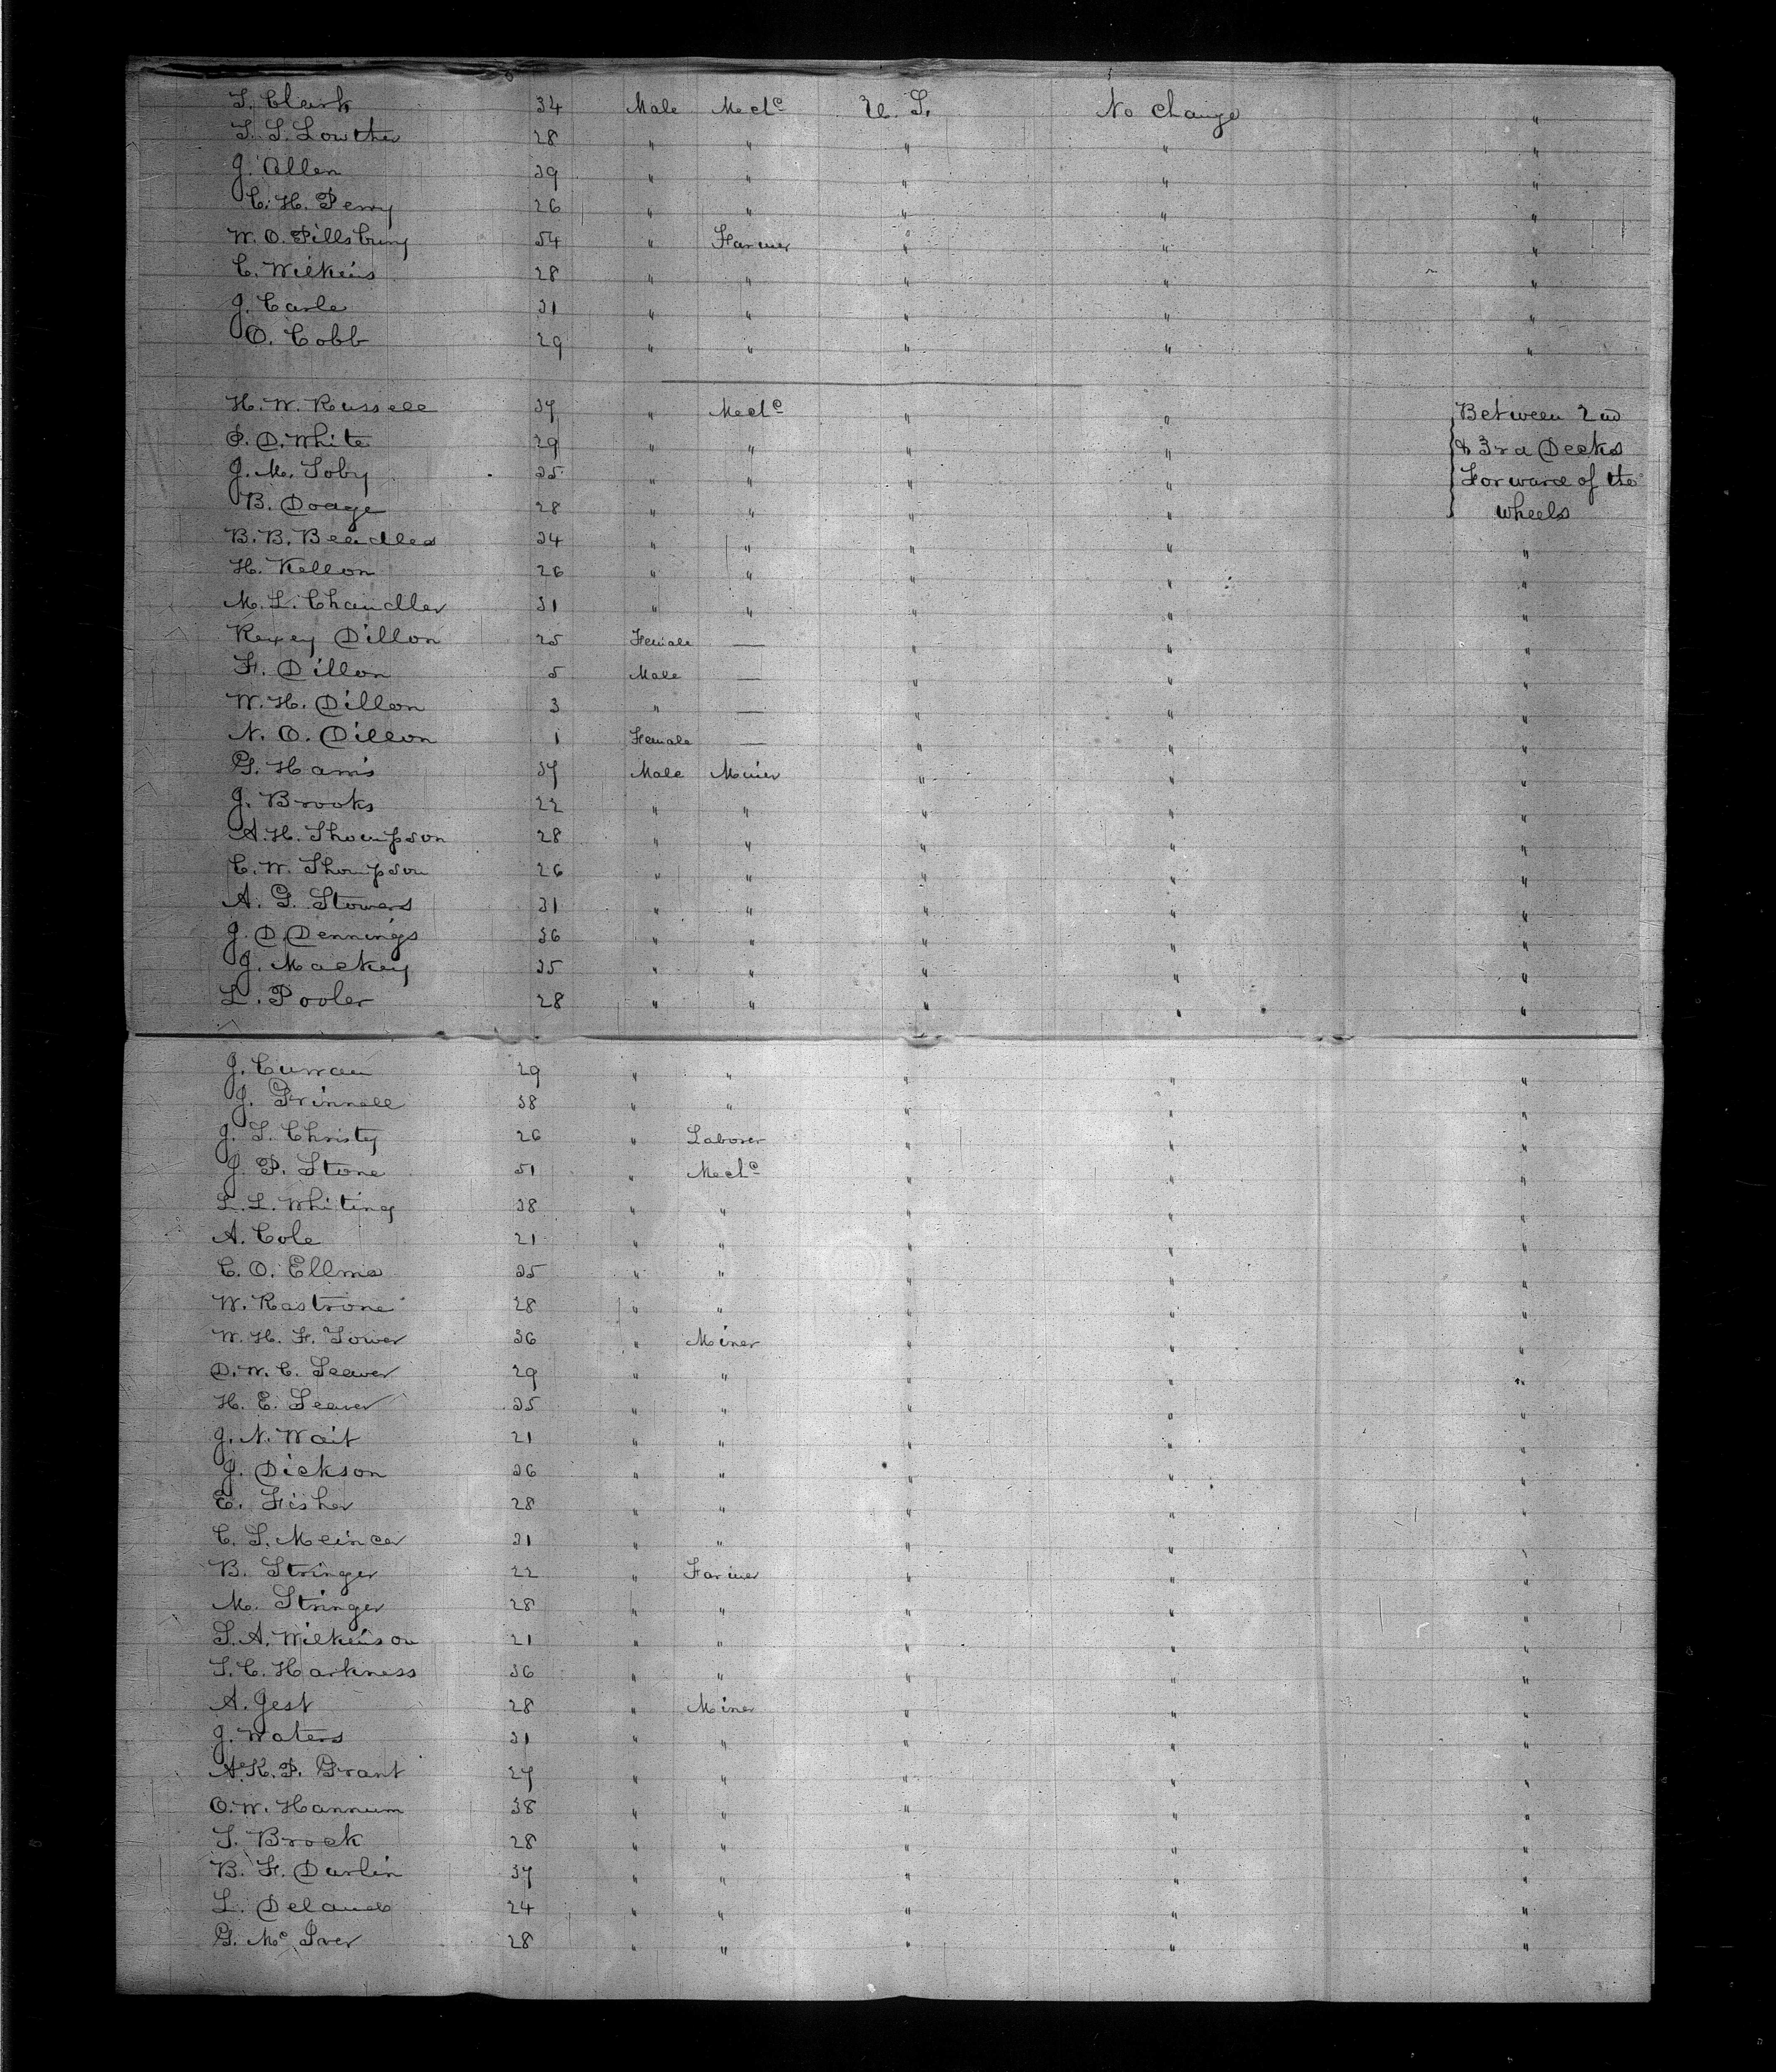 S. Clark 34 Male Mechc U. S. No change "
T. S. Lowther 28 " " " " "
J. Allen 29 " " " " "
C. H. Perry 26 " " " " "
W. O. Pillsbury 54 " Farmer " " "
C. Wilkins 28 " " " " "
J. Carle 31 " " " " "
O. Cobb 29 " " " " "
H. W. Russell 37 " Mechc " " Between 2nd
P. D. White 29 " " " " & 3rd Decks
J. M. Toby 25 " " " " Forward of the
B. Dodge 28 " " " " wheels
B. B. Beadles 34 " " " " "
H. Kellon 26 " " " " "
M. L. Chandler 31 " " " " "
Dillon 25 Female — " " "
F. Dillon 5 Male — " " "
W. H. Dillon 3 " — " " "
N. O. Dillon 1 Female — " " "
G. Harris 37 Male Miner " " "
J. Brooks 22 " " " " "
A. H. Thompson 28 " " " " "
C. W. Thompson 26 " " " " "
A. G. Stowers 31 " " " " "
J. D. Dennings 36 " " " " "
J. Mackey 25 " " " " "
L. Pooler 28 " " " " "
J. Curran 29 " " " " "
J. Grinnell 38 " " " " "
J. S. Christy 26 " Laborer " " "
J. P. Stone 51 " Mechc " " "
L. L. Whiting 38 " " " " "
A. Cole 21 " " " " "
C. O. Ellms 25 " " " " "
W. Rastrone 28 " " " " "
W. H. F. Tower 36 " Miner " " "
D. W. C. Seaver 29 " " " " "
H. E. Seaver 25 " " " " "
J. N. Wait 21 " " " " "
J. Dickson 26 " " " " "
E. Fisher 28 " " " " "
C. S. Meincer 31 " " " " "
B. Stringer 22 " Farmer " " "
M. Stringer 28 " " " " "
S. A. Wilkinson 21 " " " " "
S. C. Harkness 36 " " " " "
A. Jest 28 " Miner " " "
J. Waters 31 " " " " "
A. K. P. Grant 27 " " " " "
O. W. Hannum 38 " " " " "
S. Brock 28 " " " " "
B. F. Darlin 37 " " " " "
L. Deland 24 " " " " "
G. Mc Iver 28 " " " " "